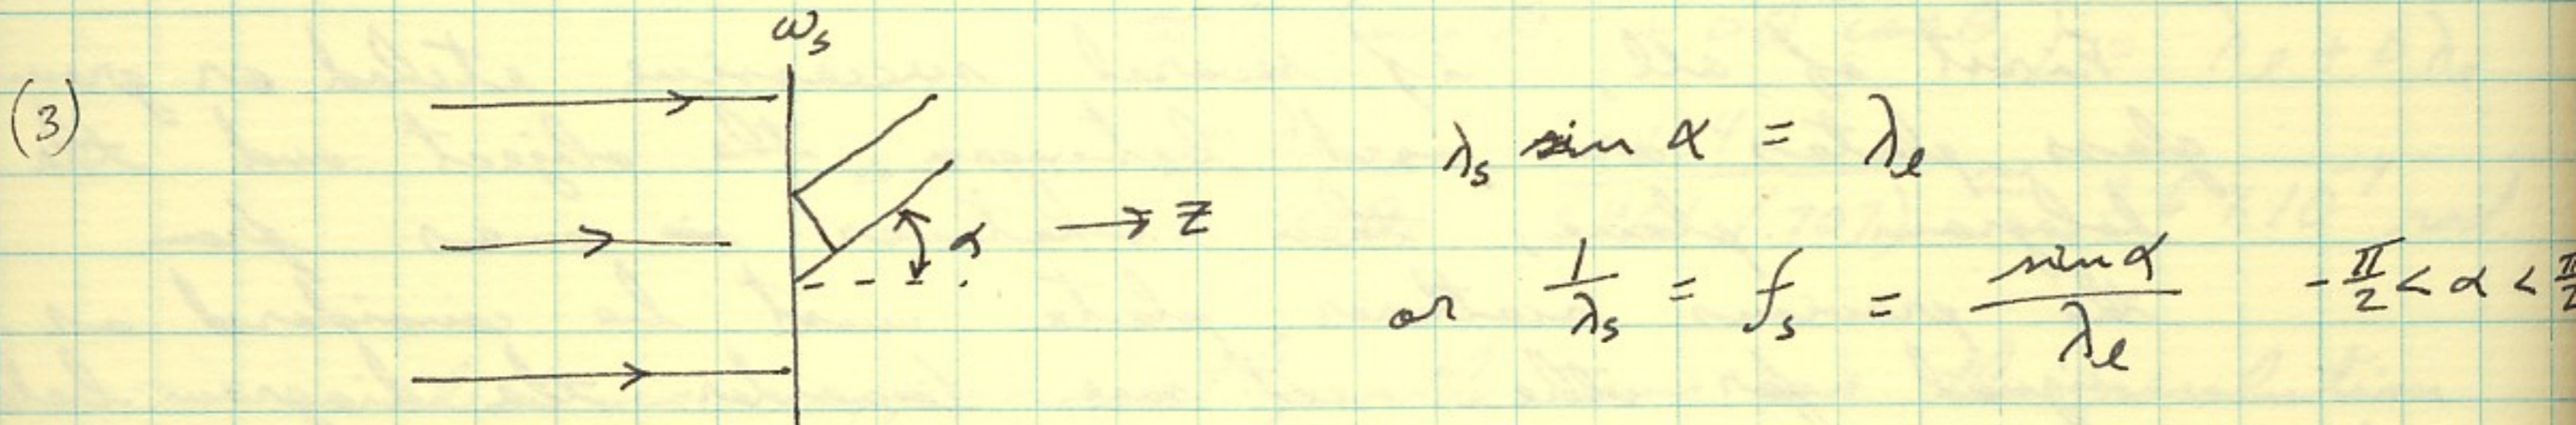 ω_s
(3)
λ_s sin α = λ_e
α → z
or 1/λ_s = f_s = sin α / λ_e   -π/2 < α < π/2